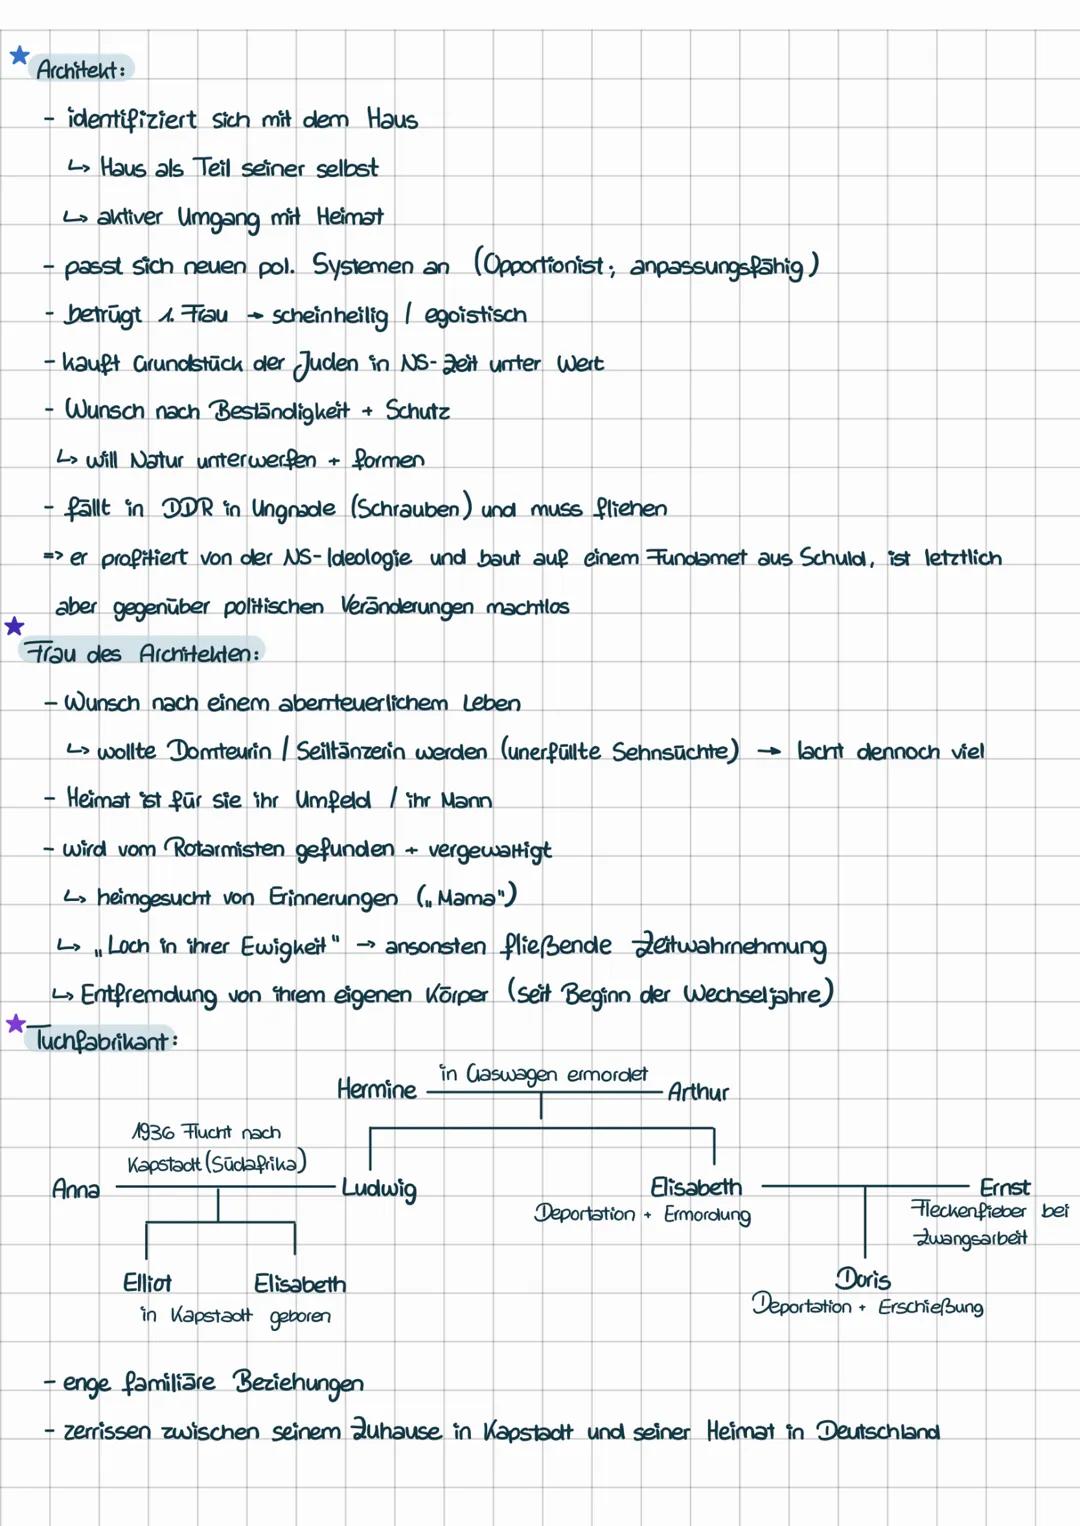 Architekt:
- identifiziert sich mit dem Haus
↳ Haus als Teil seiner selbst
↳ aktiver Umgang mit Heimat
- passt sich neuen pol. Systemen an (Opportionist; anpassungsfähig)
- betrügt 1. Frau → scheinheilig / egoistisch
- kauft Grundstück der Juden in NS-Zeit unter Wert
- Wunsch nach Beständigkeit + Schutz
↳ will Natur unterwerfen + formen
- fällt in DDR in Ungnade (Schrauben) und muss fliehen
=> er profitiert von der NS-Ideologie und baut auf einem Fundamet aus Schuld, ist letztlich
aber gegenüber politischen Veränderungen machtlos
Frau des Architekten:
- Wunsch nach einem abenteuerlichem Leben
↳ wollte Domteurin / Seiltänzerin werden (unerfüllte Sehnsüchte) → lacht dennoch viel
- Heimat ist für sie ihr Umfeld / ihr Mann
- wird vom Rotarmisten gefunden + vergewaltigt
↳ heimgesucht von Erinnerungen („Mama")
↳ „Loch in ihrer Ewigkeit" → ansonsten fließende Zeitwahrnehmung
↳ Entfremdung von ihrem eigenen Körper (seit Beginn der Wechseljahre)
Tuchfabrikant:
Hermine in Gaswagen ermordet Arthur
1936 Flucht nach
Kapstadt (Südafrika)
Anna Ludwig Elisabeth Ernst
Deportation + Ermordung Fleckenfieber bei
Zwangsarbeit
Elliot Elisabeth Doris
in Kapstadt geboren Deportation + Erschießung
- enge familiäre Beziehungen
- zerrissen zwischen seinem Zuhause in Kapstadt und seiner Heimat in Deutschland